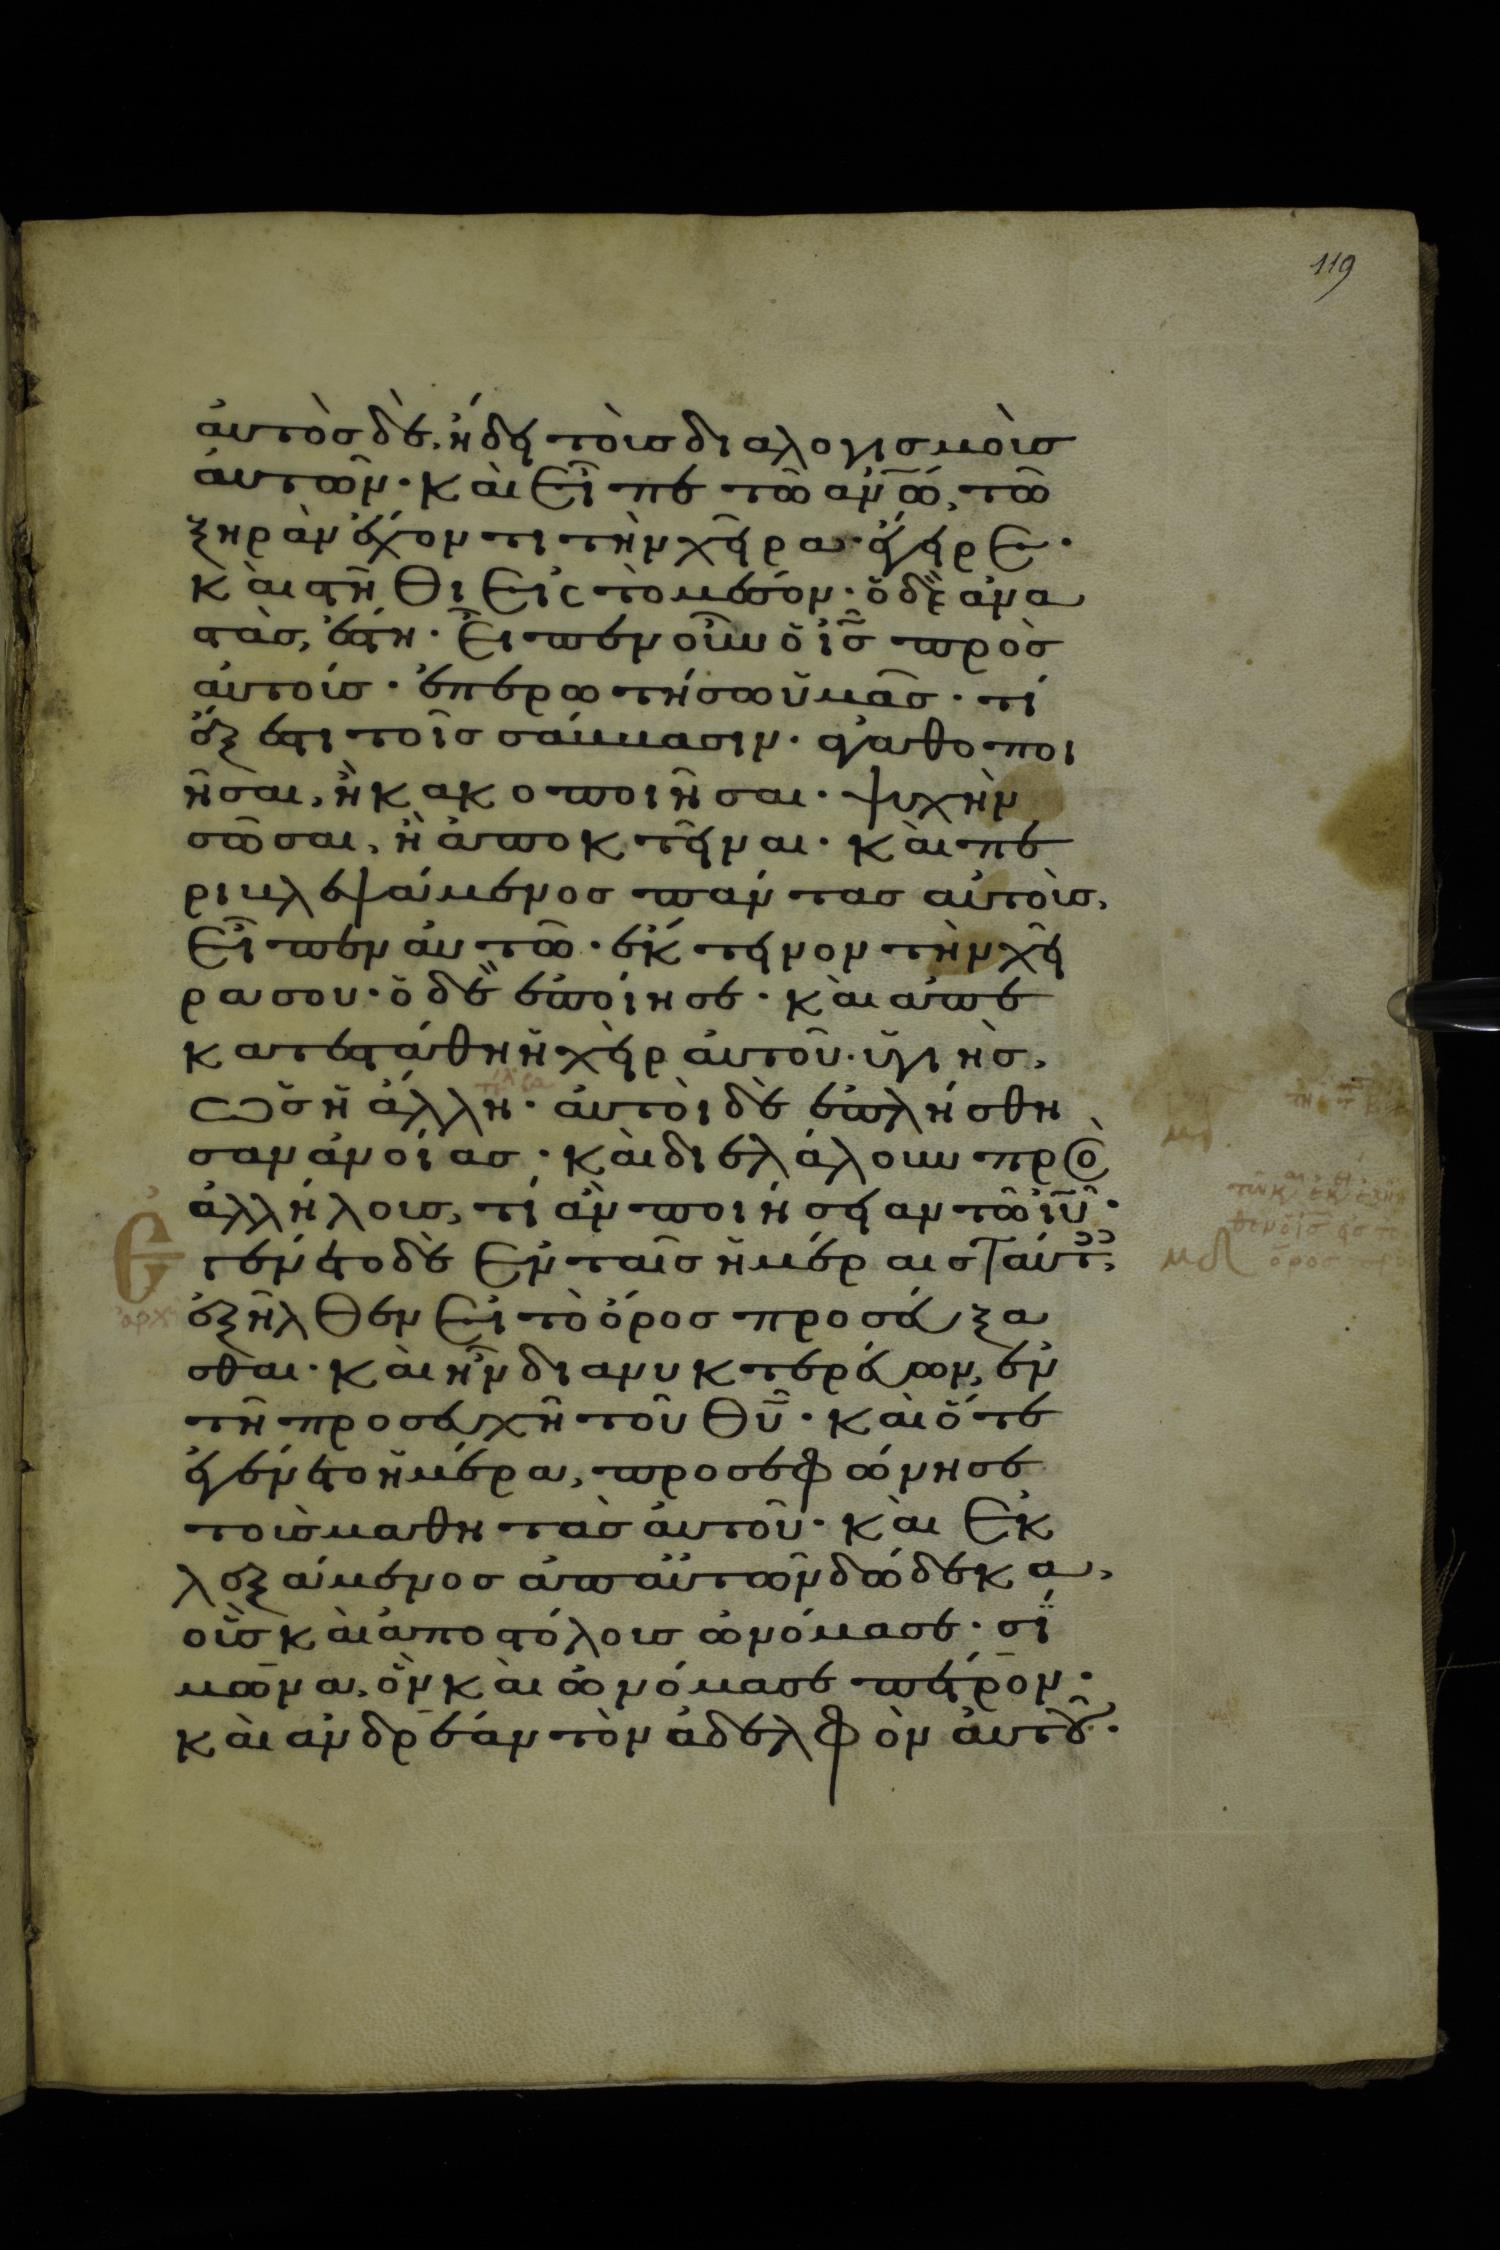 119
ἀυτὸσ δὲ, ἤδει τοὺσ διαλογισμοὺσ
ἀυτῶν· καὶ εἶπε τῶ ἀν̅ω̅, τῶ
ξηρὰν ἔχοντι τὴν χεῖρα· ἔγειρε·
καὶ στῆθι εἰς τὸ μέσον· ὁ δὲ ἀνα
στὰσ, ἔστη· εἶπεν οὖν ὁ ι̅σ̅ πρὸσ
ἀυτούσ· ἐπερωτήσω ὑμᾶσ· τί
ἔξεστι τοῖσ σάββασιν· ἀγαθοποι
ῆσαι, ἢ κακοποιῆσαι· ψυχὴν
σῶσαι, ἢ ἀποκτεῖναι· καὶ πε
ριβλεψάμενοσ πάντασ αὐτοὺσ,
εἶπεν ἀυτῶ· ἔκτεινον τὴν χεῖ
ρα σου· ὁ δὲ ἐποίησε· καὶ ἀπε
κατεστάθη ἡ χεὶρ ἀυτοῦ· ὑγιὴσ,
ὡσ ἡ ἄλλη· ἀυτοὶ δὲ ἐπλήσθη
σαν ἀνοίασ· καὶ διελάλουν πρὸ
ἀλλήλουσ, τί ἂν ποιήσειαν τῶ ι̅υ̅·
Εγένετο δὲ ἐν ταῖσ ἡμέραισ ταύτ,
ἐξῆλθεν εἰ τὸ ὄροσ προσεύξα
σθαι· καὶ ἦν διανυκτερεύων, ἐν
τῆ προσευχῆ τοῦ θ̅υ̅· καὶ ὅτε
ἐγένετο ἡμέρα, προσεφώνησε
τοὺσ μαθητὰσ ἀυτοῦ· καὶ ἐκ
λεξάμενοσ ἀπ ἀυτῶν δώδεκα,
οὓσ καὶ ἀποστόλουσ ὠνόμασε· σί
μωνα, ὃν καὶ ὠνόμασε πέτρον·
καὶ ἀνδρέαν τὸν ἀδελφὸν ἀυτοῦ·
ἀρχ
μδ